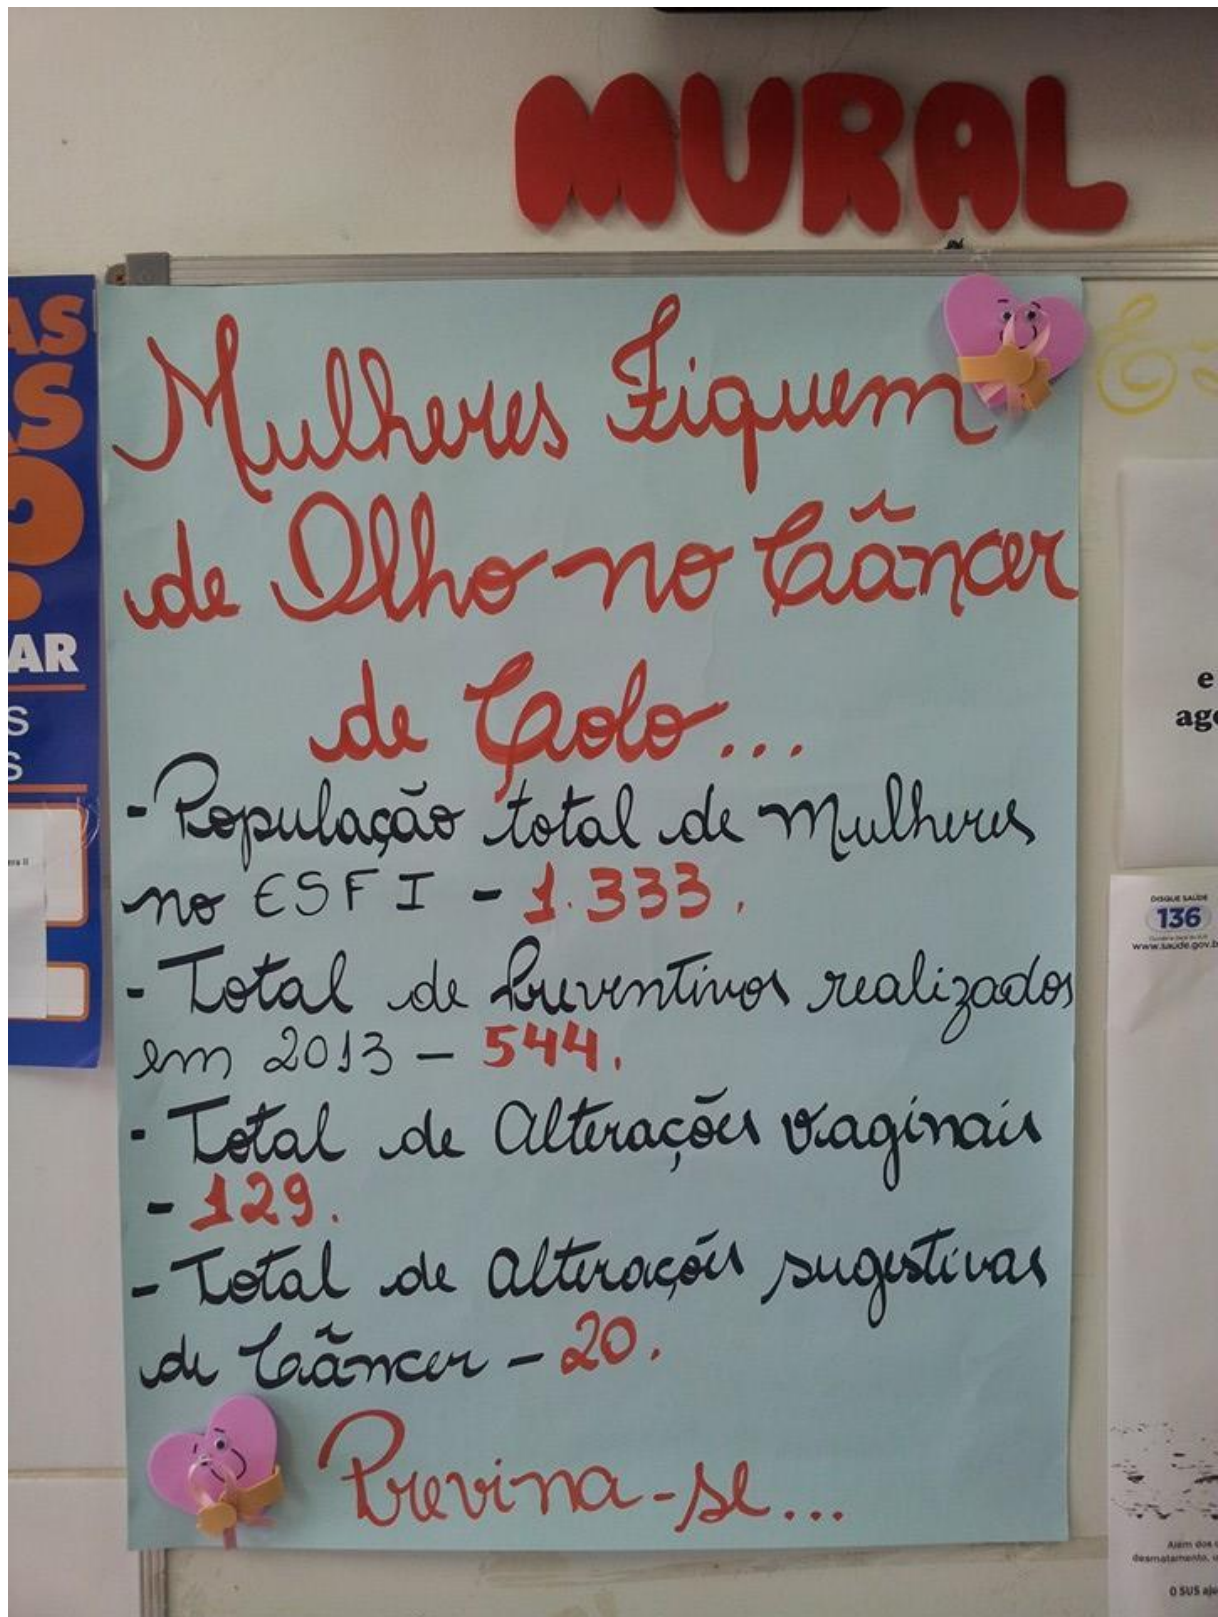 MURAL
AS
AS
?
AR
S
S
Mulheres Fiquem
de Olho no Câncer
de Colo...
- População total de Mulheres
no ESF I - 1.333.
- Total de Preventivos realizados
em 2013 - 544.
- Total de Alterações vaginais
- 129.
- Total de Alterações sugestivas
de Câncer - 20.
Previna-se...
e
ago
DISQUE SAÚDE
136
www.saude.gov.b
Além dos
desmatamento, u
O SUS aju